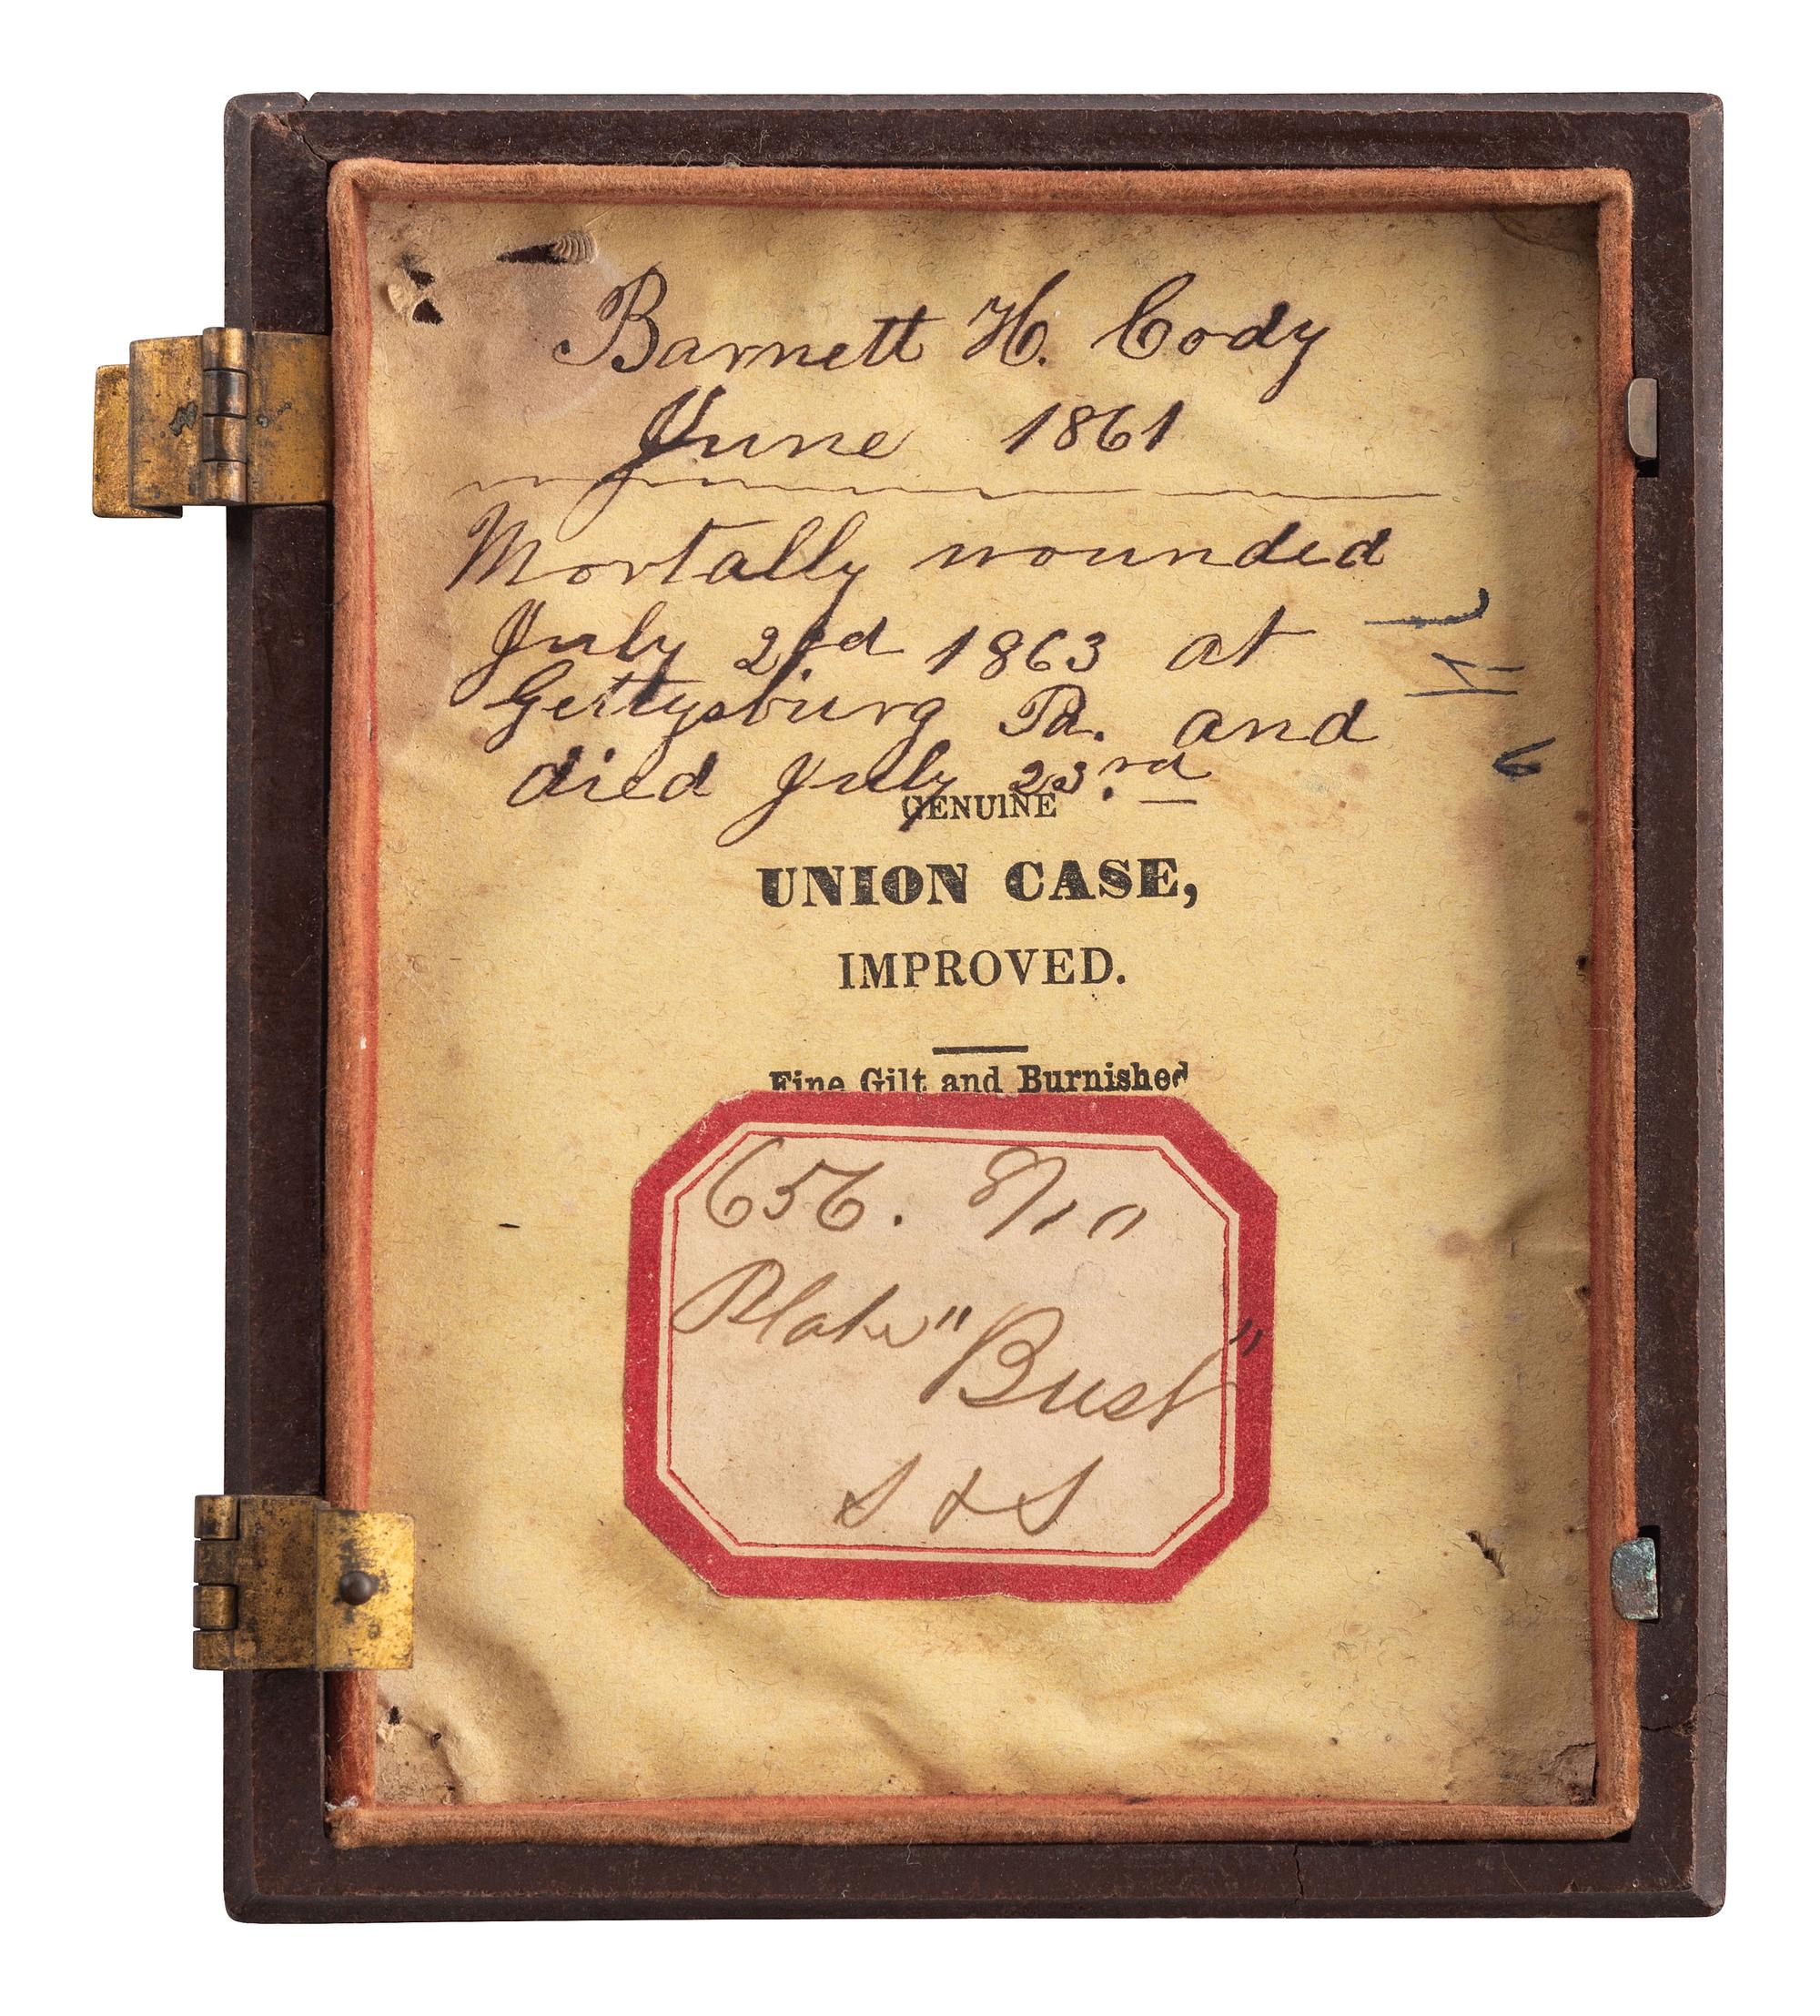 Barnett H. Cody
June 1861
Mortally wounded
July 2nd 1863 at
Gettysburg Pa. and
died July 23.rd
GENUINE
UNION CASE,
IMPROVED.
Fine Gilt and Burnished
656. 
Plate "Bust"
S & S